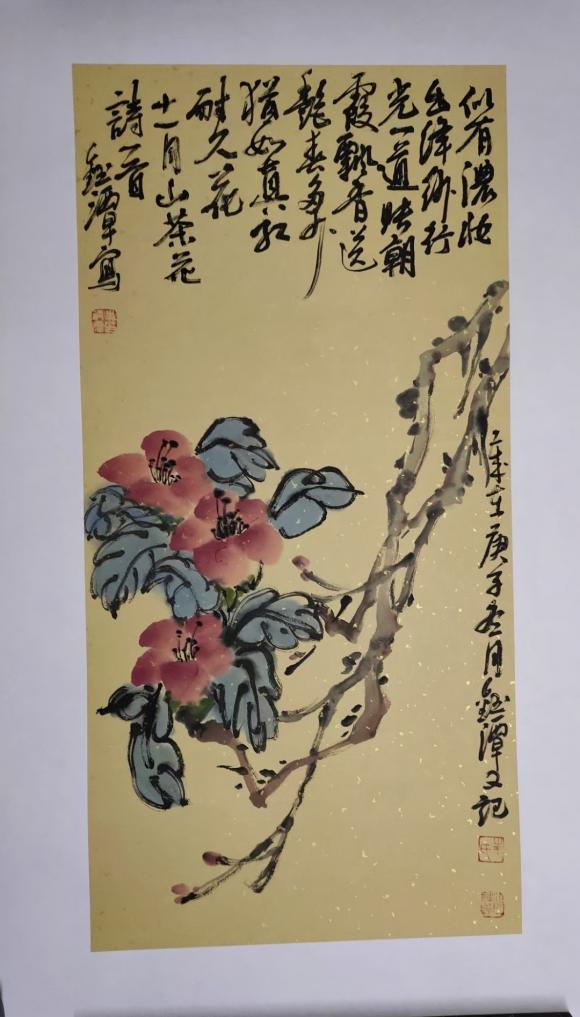 似有濃妝
出絳紗行
光一道映朝
霞飄香送
艷春多少
猶如真紅
耐久花
十一月山茶花
詩一首
潭寫
歲在庚子冬月潭又記